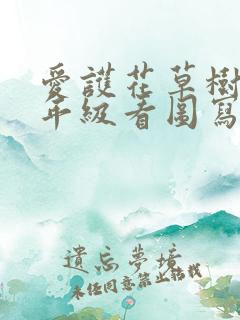 愛護花草樹
年級看圖寫
遺忘夢境
未經同意禁止轉載